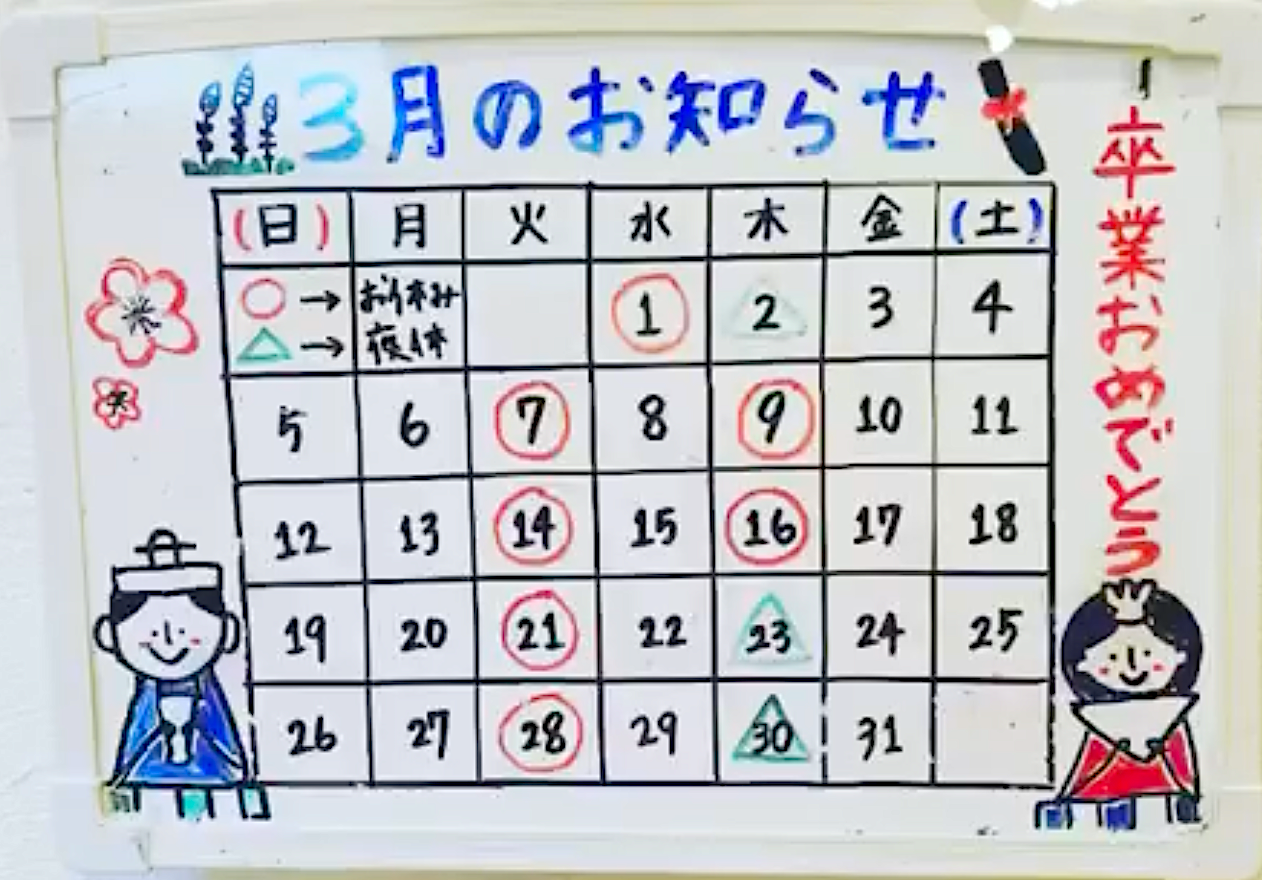 3月のお知らせ
(日) 月 火 水 木 金 (土)
○→ お休み 1 2 3 4
△→ 夜休
5 6 7 8 9 10 11
12 13 14 15 16 17 18
19 20 21 22 23 24 25
26 27 28 29 30 31
卒業おめでとう